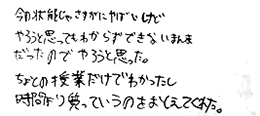 今の状態じゃさすがにやばいけど
やろうと思ってもわからずできないまんま
だったのでやろうと思った。
ちょとの授業だけでわかったし
時間より質っていうのをおしえてくれた。